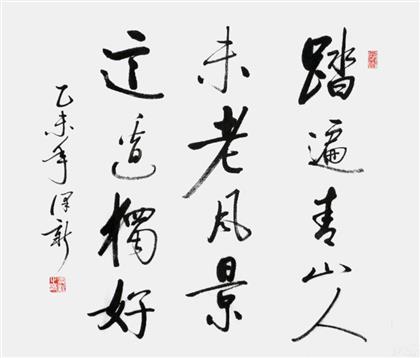 踏遍青山人
未老风景
这边獨好
乙未年 泽新